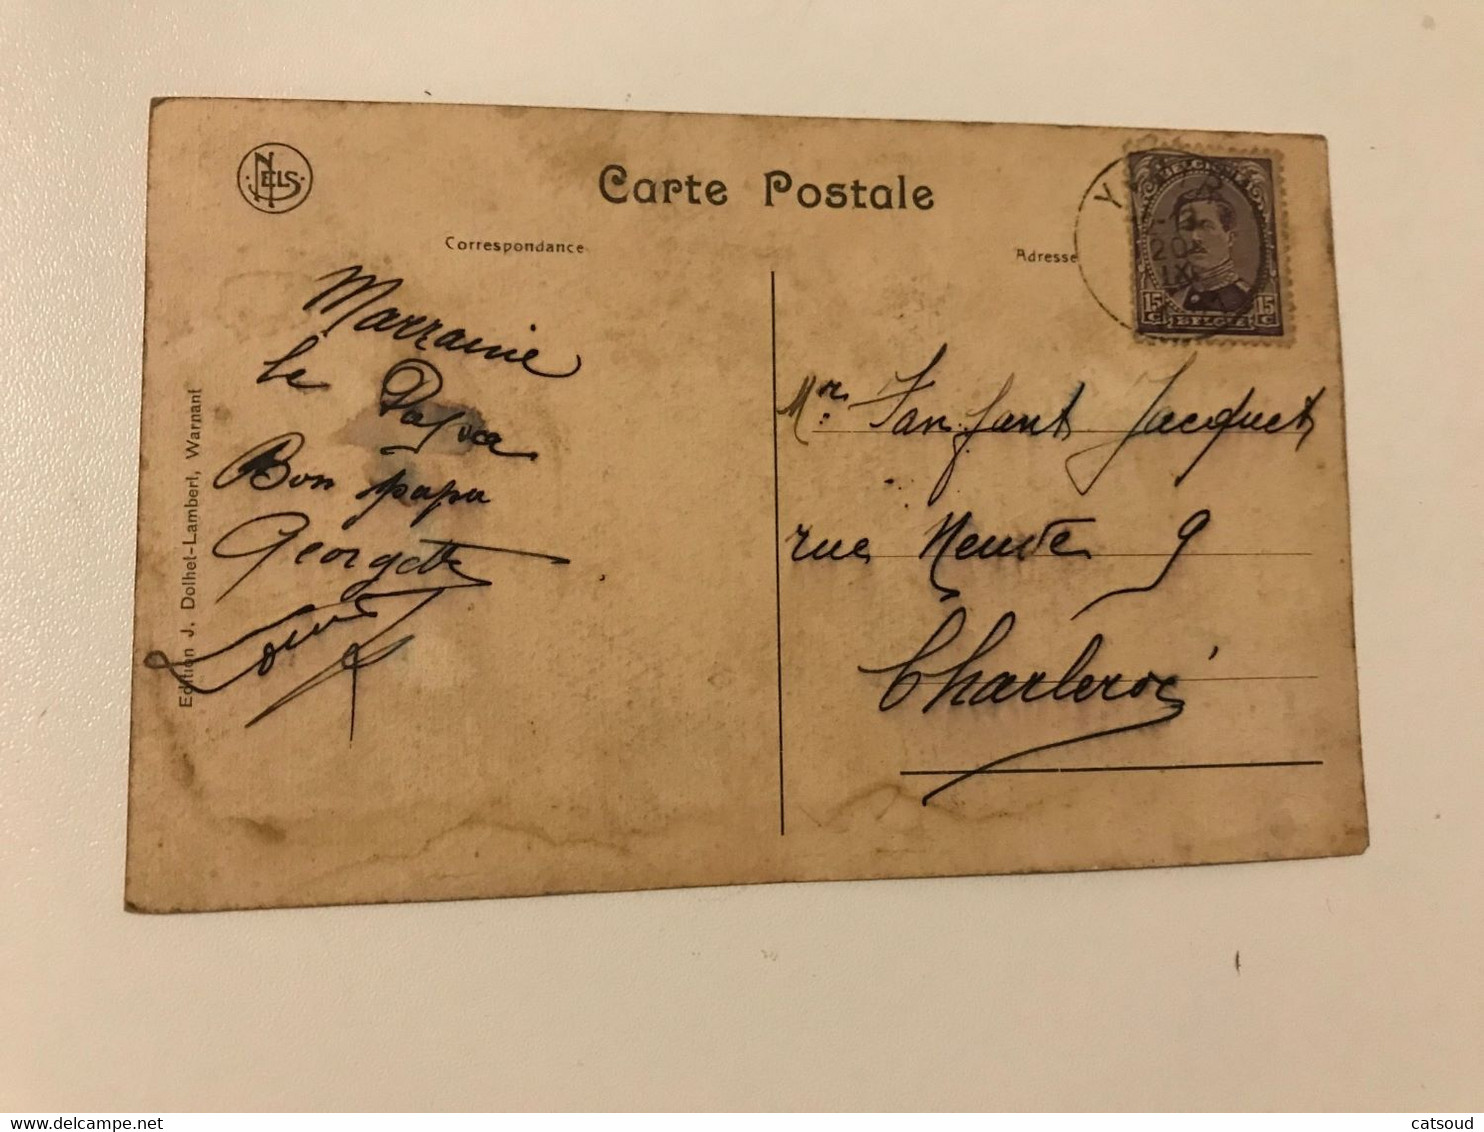 NELS
Carte Postale
Correspondance
Adresse
BELGIQUE
15 C
15 C
BELGIE
12-13
20
IX
Marraine
le
Bon papa
Georgette
Mr Fanfant Jacquet
rue Neuve 9
Charleroi
Edition J. Dolhet-Lambert, Warnant
catsoud